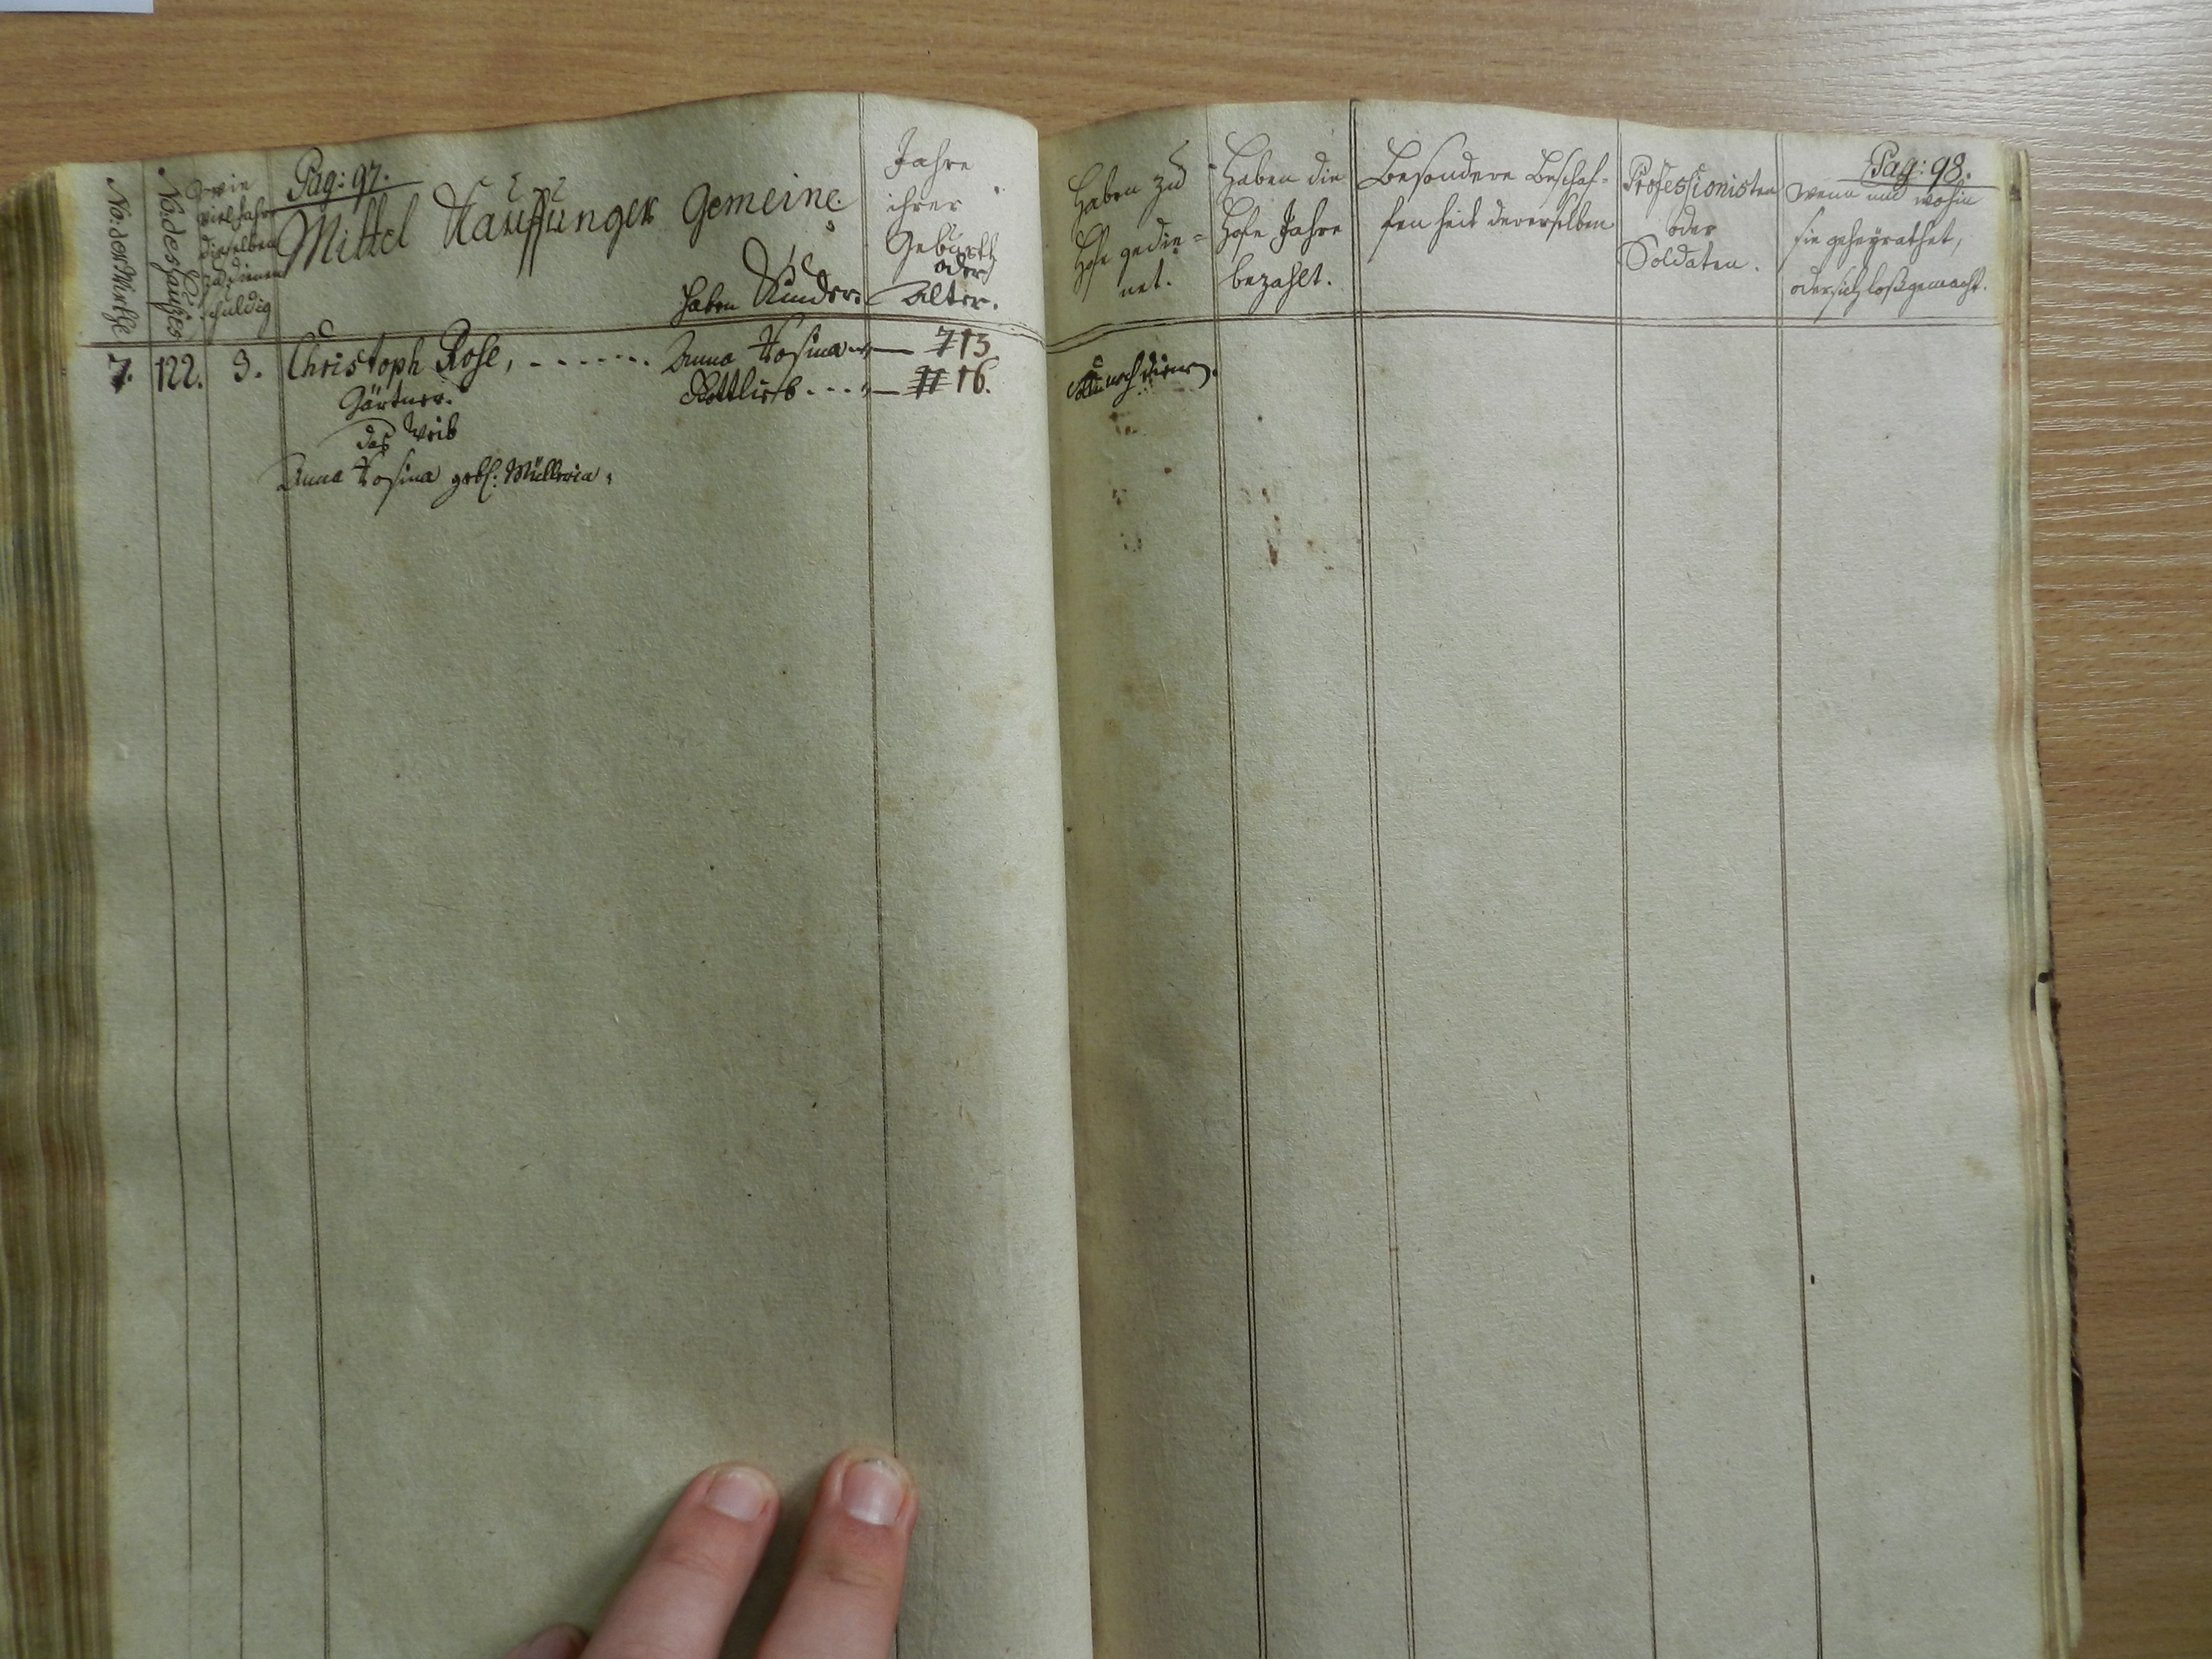 Pag: 97.
No: der Wirthe
No: des Hauses
wie
viel Jahre
dieselben
zu dienen
schuldig
Mittel Kauffunger Gemeine.
haben Kinder.
Jahre
ihrer
Geburth
oder
Alter.
7. 122. 3. Christoph Rose, - - - - - - Anna Rosina - - 7 13
Gärtner. Gottlieb - - - - 11 16.
das Weib
Anna Rosina geb. Müllerin
Haben zu
Hofe gedie-
net.
Haben die
Hofe Jahre
bezahlt.
Besondere Beschaf-
fenheit dererselben
Professionisten
oder
Soldaten.
Pag: 98.
Wenn und wohin
sie geheyrathet,
oder sich loßgemacht.